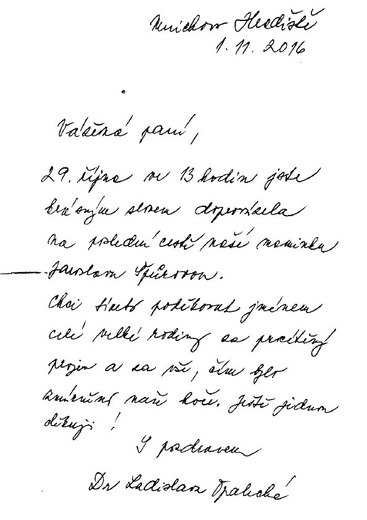 Mnichovo Hradiště
1.11.2016
Vážená paní,
29. října ve 13 hodin jste
krásným slovem doprovodila
na poslední cestě naší maminku
Jaroslavu
Chci tímto poděkovat jménem
celé velké rodiny za procítěný
projev a za vše, čím bylo
zmírněno naše hoře. Ještě jednou
děkuji!
S pozdravem
Dr Ladislava